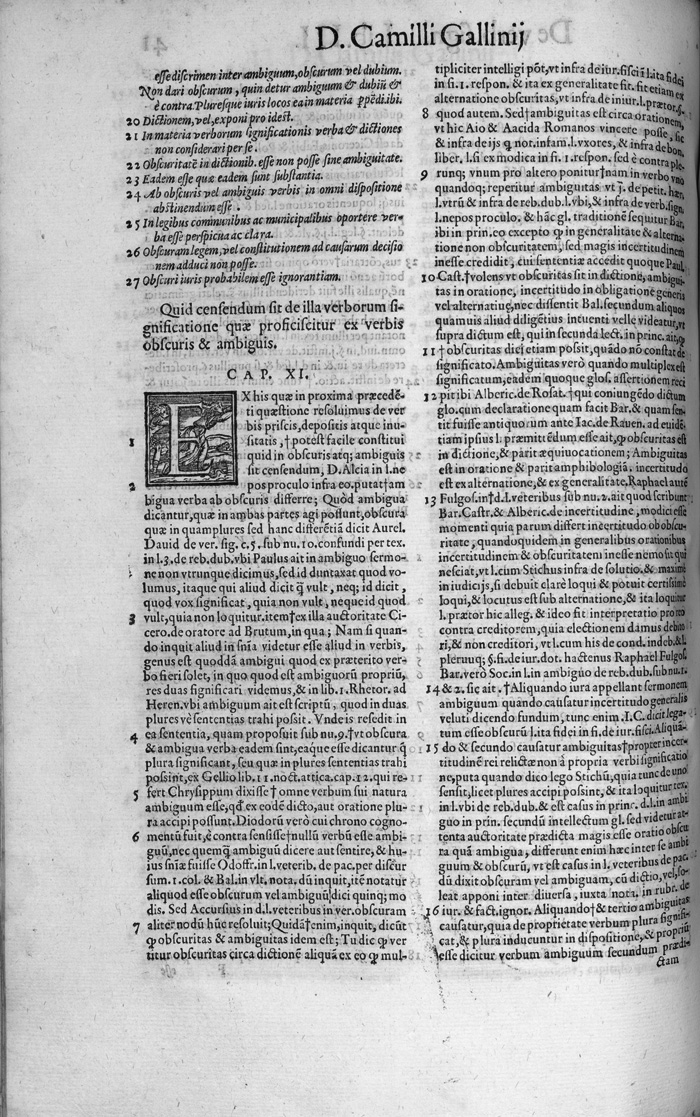 D. Camilli Gallinij
esse discrimen inter ambiguum, obscurum vel dubium.
Non dari obscurum, quin detur ambiguum & dubiū &
è contra. Pluresque iuris locos ea in materia ꝑpēdi. ibi.
20 Dictionem, vel, exponi pro idest.
21 In materia verborum significationis verba & dictiones
non considerari per se.
22 Obscuritatē in dictionib. esse non posse sine ambiguitate.
23 Eadem esse quæ eadem sunt substantia.
24 Ab obscuris vel ambiguis verbis in omni dispositione
abstinendum esse.
25 In legibus communibus ac municipalibus oportere ver-
ba esse perspicua ac clara.
26 Obscuram legem, vel constitutionem ad causarum decisio
nem adduci non posse.
27 Obscuri iuris probabilem esse ignorantiam.
Quid censendum sit de illa verborum si-
gnificatione quæ proficiscitur ex verbis
obscuris & ambiguis.
CAP. XI.
EX his quæ in proxima præcedē-
ti quæstione resoluimus de ver
bis priscis, depositis atque inu-
1 sitatis, †potest facile constitui
quid in obscuris atq; ambiguis
sit censendum, D. Alcia in l. ne
2 pos proculo infra eo. putat†am
bigua verba ab obscuris differre; Quòd ambigua
dicantur, quæ in ambas partes agi possunt, obscura
quæ in quamplures sed hanc differētiā dicit Aurel.
Dauid de ver. sig. c. 5. sub nu. 10. confundi per tex.
in l. 3. de reb. dub. vbi Paulus ait in ambiguo sermo-
ne non vtrunque dicimus, sed id duntaxat quod vo-
lumus, itaque qui aliud dicit q̄ vult, neq; id dicit,
quod vox significat, quia non vult, neque id quod
3 vult, quia non loquitur. item†ex illa auctoritate Ci
cero. de oratore ad Brutum, in qua; Nam si quan-
do inquit aliud in sn̄ia videtur esse aliud in verbis,
genus est quoddā ambigui quod ex præterito ver-
bo fieri solet, in quo quod est ambiguorū propriū,
res duas significari videmus, & in lib. 1. Rhetor. ad
Heren. vbi ambiguum ait est scriptū, quod in duas
plures vè sententias trahi possit. Vnde is resedit in
4 ea sententia, quam proposuit sub nu. 9. †vt obscura
& ambigua verba eadem sint, eaque esse dicantur q̄
plura significant, seu quæ in plures sententias trahi
possint, ex Gellio lib. 11. noct. attica. cap. 12. qui re-
5 fert Chrysippum dixisse †omne verbum sui natura
ambiguum esse, qđ ex eodē dicto, aut oratione plu-
ra accipi possunt. Diodorū verò cui chrono cogno-
6 mentū fuit, è contra sensisse†nullū verbū esse ambi-
guū, nec quemq̄ ambiguū dicere aut sentire, & hu-
ius sn̄iæ fuisse Odoffr. in l. veterib. de pac. per discur
sum. 1. col. & Bal. in vlt. nota. dū inquit, itē notatur
aliquod esse obscurum vel ambiguū dici quinq; mo
dis. Sed Accursius in d. l. veteribus in ver. obscuram
7 aliter nodū hūc resoluit; Quidā†enim, inquit, dicūt
ꝙ obscuritas & ambiguitas idem est; Tu dic ꝙ ver
titur obscuritas circa dictionē aliquā ex eo ꝙ mul-
tipliciter intelligi pōt, vt infra de iur. fisci in l. ita fidei
in fi. 1. respon. & ita ex generalitate fit. fit etiam ex
alternatione obscuritas, vt infra de iniur. l. prætor. §.
8 quod autem. Sed†ambiguitas est circa orationem,
vt hic Aio & Aacida Romanos vincere posse, sic
& infra de ijs q̄ not. infam. l. vxores, & infra de bon.
liber. l. si ex modica in fi. 1. respon. sed è contra ple-
9 runq; vnum pro altero ponitur†nam in verbo vno
quandoq; reperitur ambiguitas vt j. de petit. hær.
l. vtrū & infra de reb. dub. l. vbi, & infra de verb. sign.
l. nepos proculo. & hāc gl. traditionē sequitur Bar.
ibi in prin. eo excepto ꝙ in generalitate & alterna-
tione non obscuritatem, sed magis incertitudinem
inesse credidit, cui sententiæ accedit quoque Paul.
10 Cast. †volens vt obscuritas sit in dictione, ambigui-
tas in oratione, incertitudo in obligatione generis
vel alternatiuę, nec dissentit Bal. secundum aliquos
quamuis aliud diligētius intuenti velle videatur, vt
supra dictum est, qui in secunda lect. in princ. ait, ꝙ
11 †obscuritas dici etiam possit, quādo nō constat de
significato. Ambiguitas verò quando multiplex est
significatum, eadem quoque glos. assertionem reci
12 pit ibi Alberic. de Rosat. †qui coniungēdo dictum
glo. cum declaratione quam facit Bar. & quam sen-
tit fuisse antiquorum ante Iac. de Rauen. ad euiden
tiam ipsius l. præmittēdum esse ait, ꝙ obscuritas est
in dictione, & parit æquiuocationem; Ambiguitas
est in oratione & parit amphibologiā. incertitudo
est ex alternatione, & ex generalitate, Raphael autē
13 Fulgos. in†d. l. veteribus sub nu. 2. ait quod scribunt
Bar. Castr. & Alberic. de incertitudine, modici esse
momenti quia parum differt incertitudo ob obscu-
ritate, quandoquidem in generalibus orationibus
incertitudinem & obscuritatem inesse nemo sit qui
nesciat, vt l. cum Stichus infra de solutio. & maxime
in iudicijs, si debuit clarè loqui & potuit certissimè
loqui, & locutus est sub alternatione, & ita loquitur
l. prætor hic alleg. & ideo fit interpretatio pro reo
contra creditorem, quia electionem damus debito
ri, & non creditori, vt l. cum his de cond. indeb. & l.
plerunq; §. fi. de iur. dot. hactenus Raphael Fulgos.
Bar. verò Soc. in l. in ambiguo de reb. dub. sub nu. 1.
14 & 2. sic ait. †Aliquando iura appellant sermonem
ambiguum quando causatur incertitudo generalis
veluti dicendo fundum, tunc enim I. C. dicit lega-
tum esse obscurū l. ita fidei in fi. de iur. fisci. Aliquā-
15 do & secundo causatur ambiguitas†propter incer-
titudinē rei relictæ non à propria verbi significatio
ne, puta quando dico lego Stichū, quia tunc de vno
sensit, licet plures accipi possint, & ita loquitur tex.
in l. vbi de reb. dub. & est casus in princ. d. l. in ambi
guo in prin. secundū intellectum gl. sed videtur at-
tenta auctoritate prædicta magis esse oratio obscu
ra quā ambigua, differunt enim hæc inter se ambi
guum & obscurū, vt est casus in l. veteribus de pac.
dū dixit obscuram vel ambiguam, cū dictio, vel, so-
leat apponi inter diuersa, iuxta nota. in rubr. de
16 iur. & fact. ignor. Aliquando†& tertio ambiguitas
causatur, quia de proprietate verbum plura signifi-
cat, & plura inducuntur in dispositione, & propriū
esse dicitur verbum ambiguum secundum prædi-
ctam